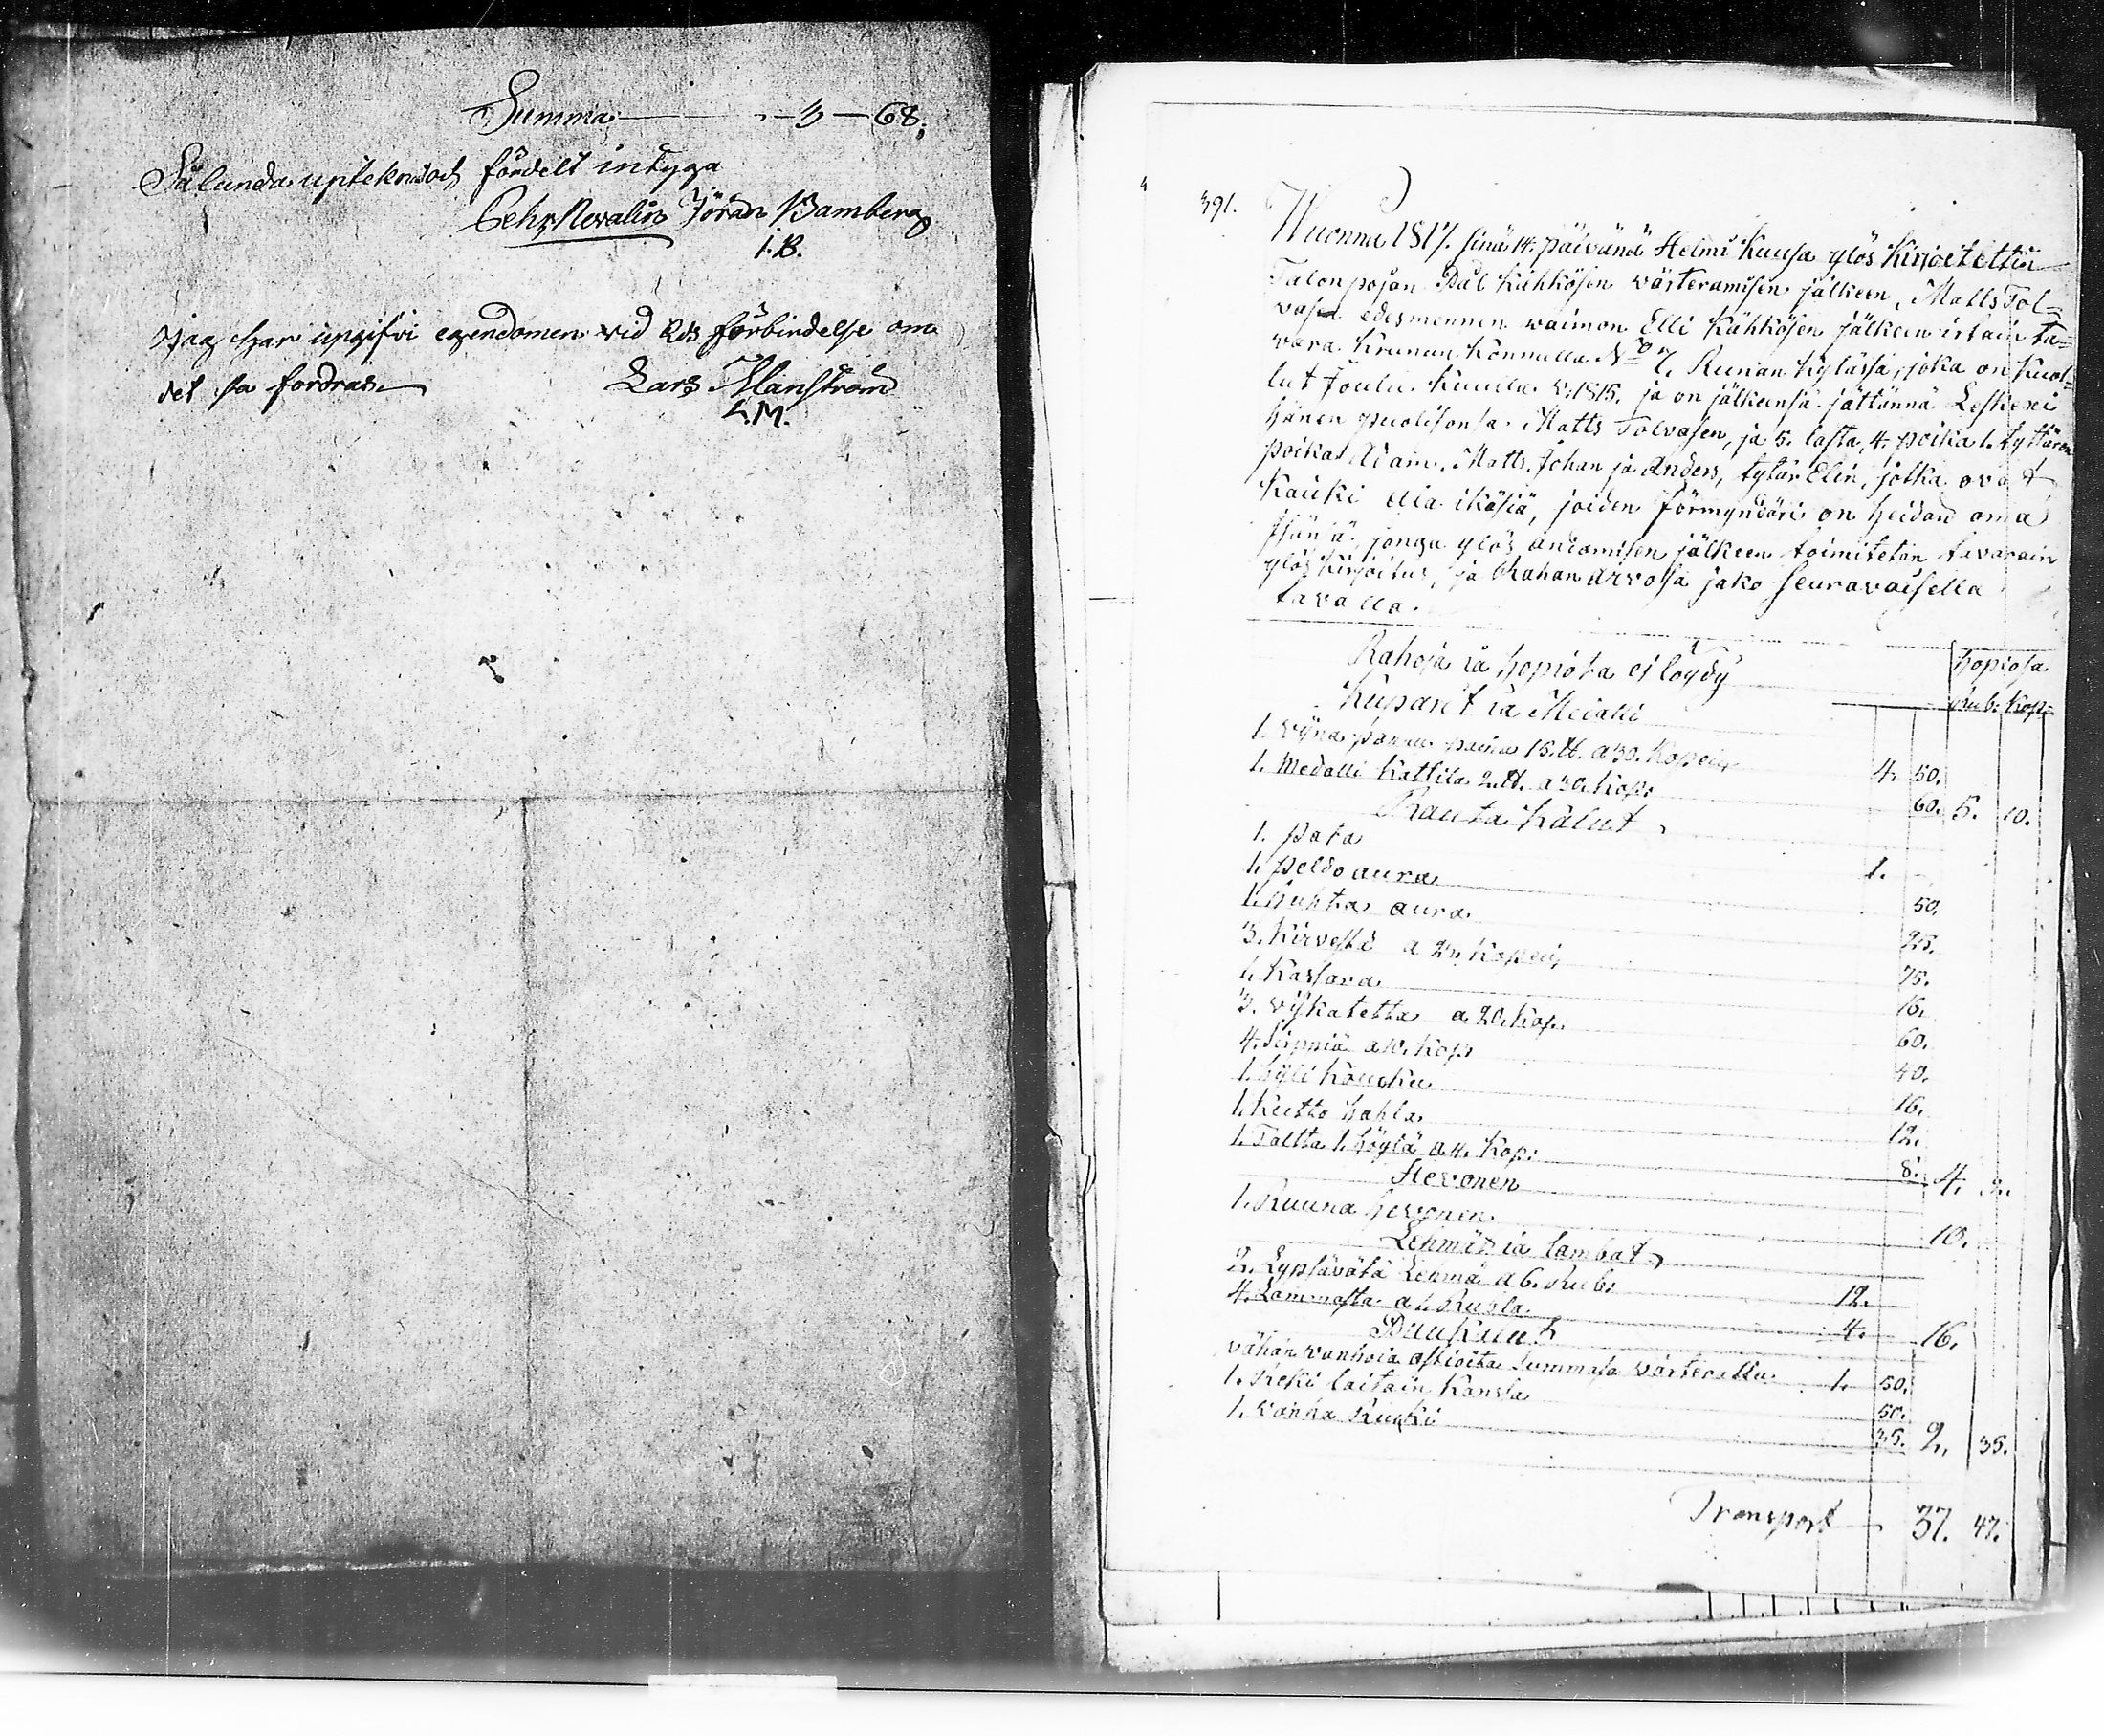 Summa 3 — 68.
Sålunda upteknad och fördelt intyga
Pehr Novalin Jöran Bamberg
I.B.
Jag har upgifvi egendomen vid Eds förbindelse om
det så fordras
Lars Manström
L.M.
391.
Wuonna 1817. sinä 14. päivänä Helmi Kuusa ylös Kirjoitettin
Talon pojan Pål Kähkösen värteramisen jälkeen, Matts Tol-
vasen edesmennen waimon Elli Kähkösen jälkeen irtain ta-
vara Krunun Konnulla No 7. Runan Kylässä, joka on Kuol-
lut Joulu Kuulla v. 1815. ja on jälkeensä jättännä Leskexi
hänen puolisonsa Matts Tolvasen, ja 5. lasta, 4. poika 1. tyttären
poikat Adam, Matts, Johan ja Anders, tytär Elin, jotka ovat
Kaicki ala ikäsiä, joiden Förmyndäri on heidan oma
Isänsä, jonga ylös andamisen jälkeen toimitetan tavarain
ylös kirjoitus, ja Rahan arvosa jako seuravaisella
tavalla.
hopiosa
Rahoja ia hopiota ei löydy
Rub: Kop:
Kuparit ia Medalli
1. Vijna pannu paina 15. ℔. a 30. Kopeik 4. 50.
1. Medalli Kattila 2. ℔. a 30. Kop: 60. 5. 10.
Rauta Kalut
1. Pata 1.
1. Peldo aura 50.
1. Huhta aura 25.
3. Kirvestä a 25 Kopeik 75.
1. Kassara 16.
3. Vijkatetta a 20. Kop: 60.
4. Sirpniä a 10. Kop: 40.
1. Syli Koucku 16.
1. Kusto Sahla 12.
1. Taltta 1. höylä a 4. Kop: 8. 4. 2.
Hevonen
1. Ruuna hevonen 10.
Lehmät ia lambat
2. Lypsävätä Lehmä a 6. Rub: 12.
4. Lammasta a 1. Rupla 4. 16.
Puukalut
vähän vanhoia astioita summasa värteratta 1. 50.
1. Reki laitain Kansa 50.
1. vanha Rucki 35. 2. 35.
Transport 37. 47.